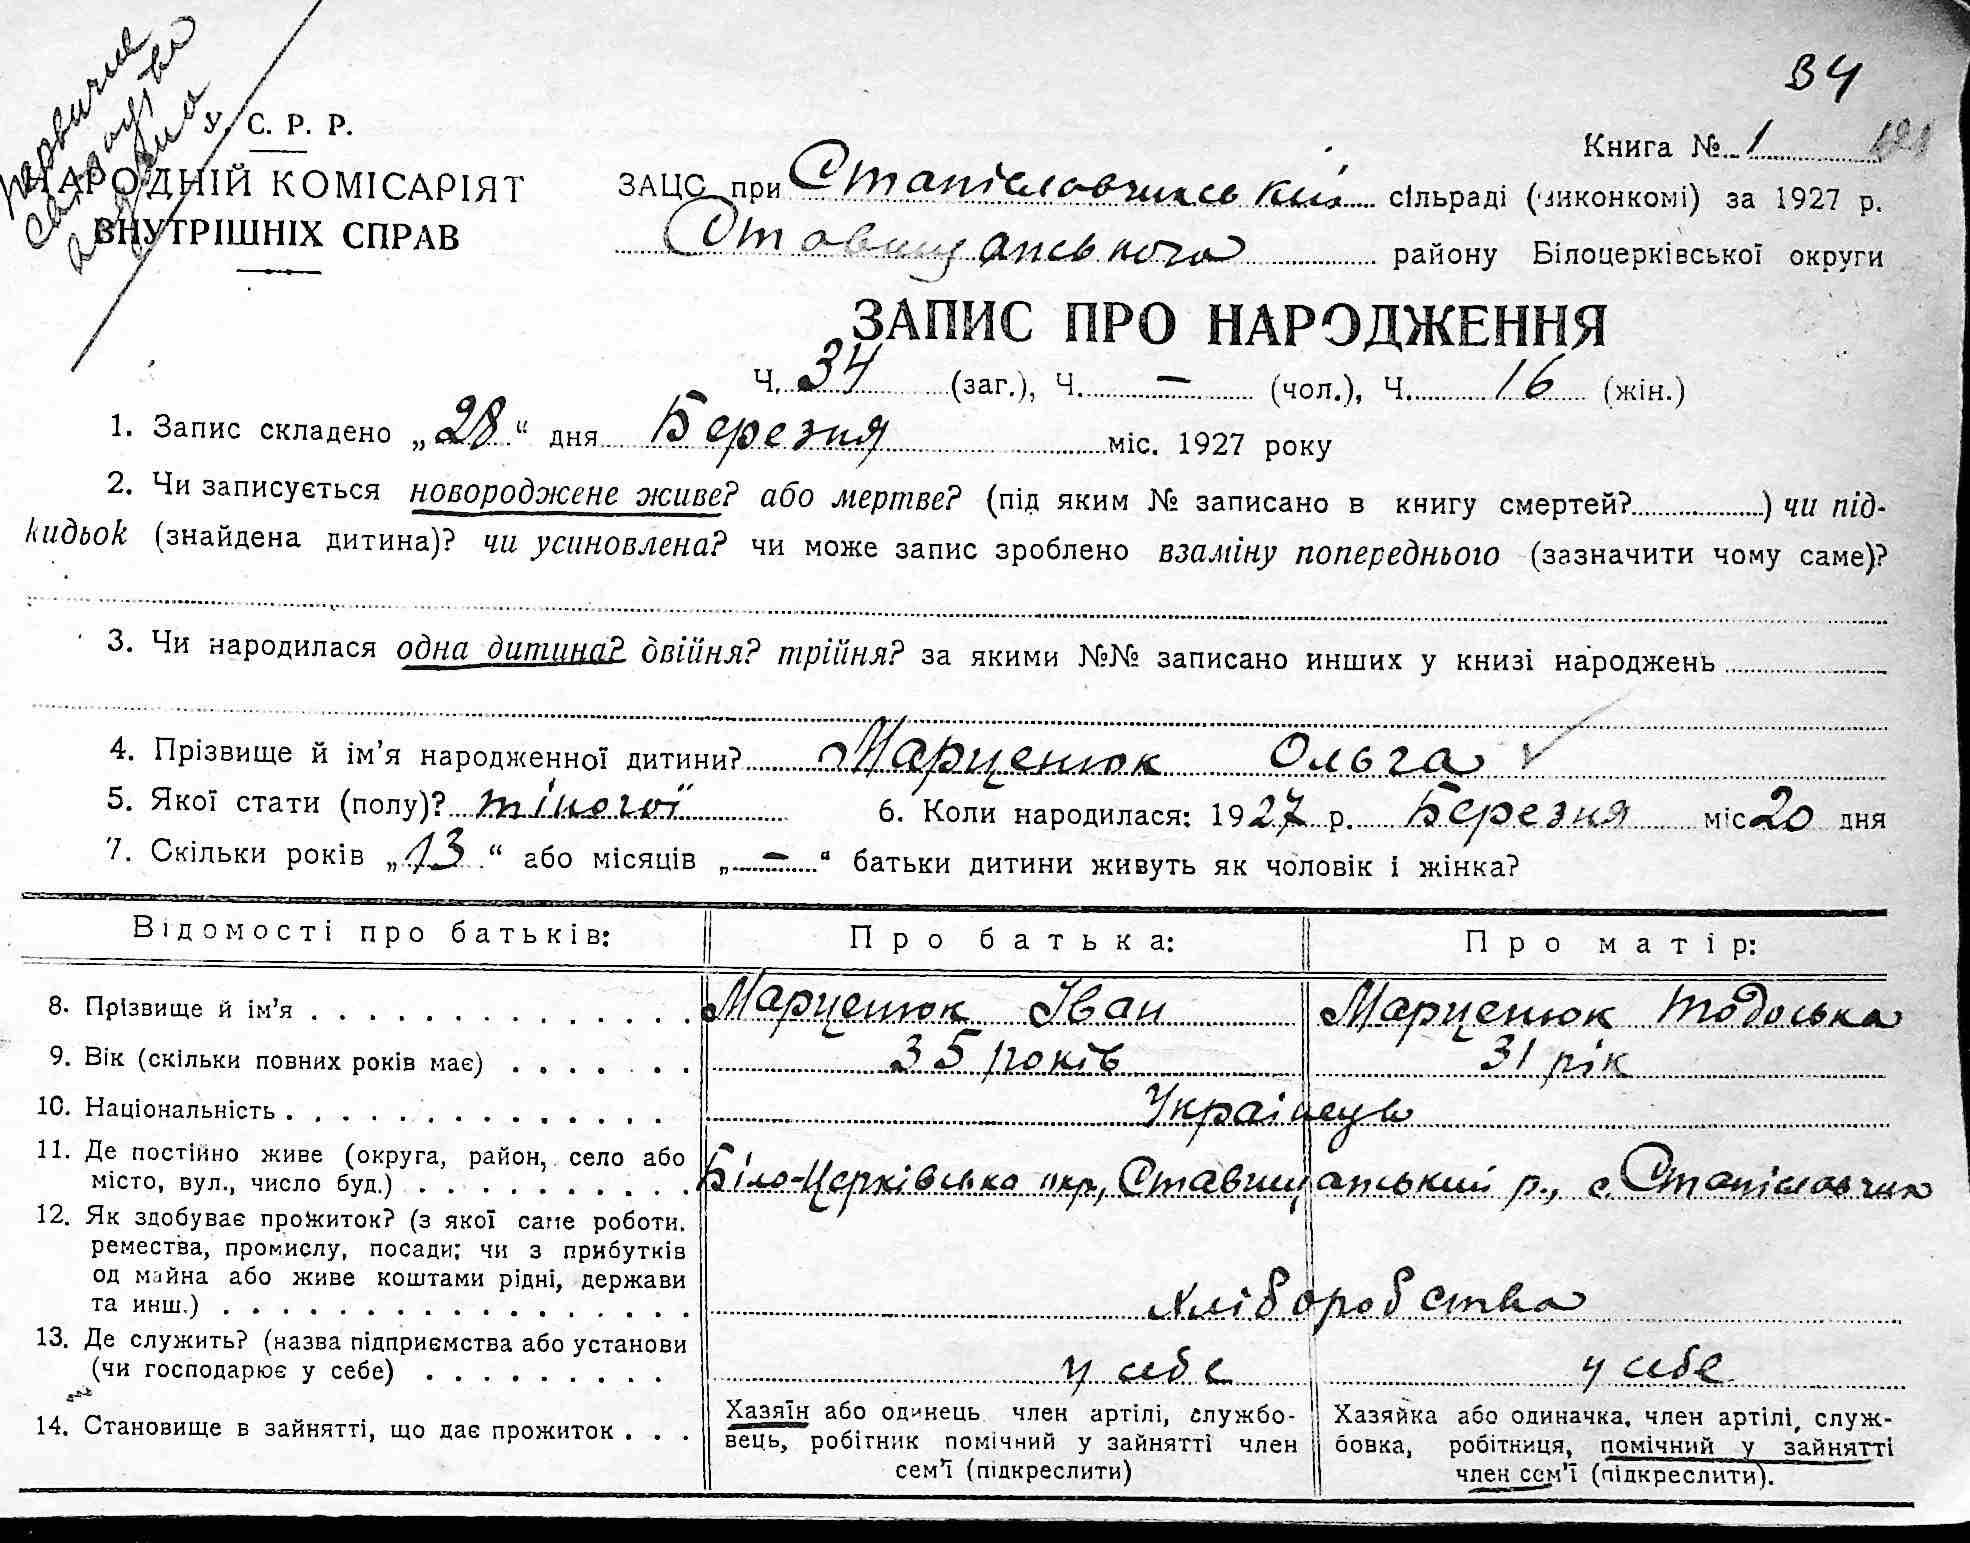 34
У. С. Р. Р.
НАРОДНІЙ КОМІСАРІЯТ
ВНУТРІШНІХ СПРАВ
Книга № 1
ЗАЦС при Станіславчиській сільраді (виконкомі) за 1927 р.
Ставищанського району Білоцерківської округи
ЗАПИС ПРО НАРОДЖЕННЯ
Ч. 34 (заг.), Ч. — (чол.), Ч. 16 (жін.)
1. Запис складено „28“ дня Березня міс. 1927 року
2. Чи записується новороджене живе? або мертве? (під яким № записано в книгу смертей?) чи під-
кидьок (знайдена дитина)? чи усиновлена? чи може запис зроблено взаміну попереднього (зазначити чому саме)?
3. Чи народилася одна дитина? двійня? трійня? за якими №№ записано инших у книзі народжень
4. Прізвище й ім'я народженної дитини? Марценюк Ольга
5. Якої стати (полу)? жіночої 6. Коли народилася: 1927 р. Березня міс 20 дня
7. Скільки років „13“ або місяців „—“ батьки дитини живуть як чоловік і жінка?
Відомості про батьків: Про батька: Про матір:
8. Прізвище й ім'я Марценюк Іван Марценюк Тодоська
9. Вік (скільки повних років має) 35 років 31 рік
10. Національність Украінець
11. Де постійно живе (округа, район, село або
місто, вул., число буд.) Біло-Церківська окр, Ставищанський р., с. Станіславчик
12. Як здобуває прожиток? (з якої саме роботи,
ремества, промислу, посади; чи з прибутків
од майна або живе коштами рідні, держави
та инш.) хліборобства
13. Де служить? (назва підприємства або установи
(чи господарює у себе) у себе у себе
14. Становище в зайнятті, що дає прожиток
Хазяїн або одинець член артілі, службо-
вець, робітник помічний у зайнятті член
сем'ї (підкреслити)
Хазяйка або одиначка, член артілі, служ-
бовка, робітниця, помічний у зайнятті
член сем'ї (підкреслити).